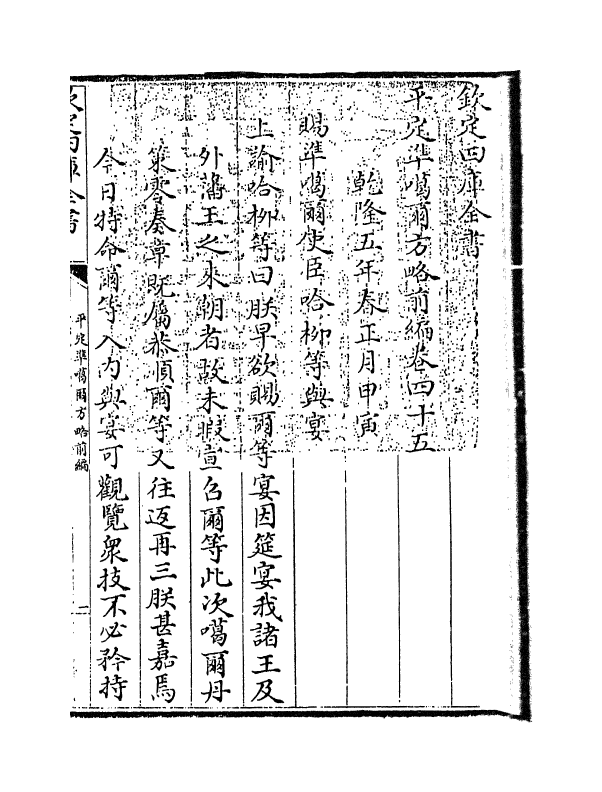 欽定四庫全書
平定準噶爾方略前編卷四十五
乾隆五年春正月甲寅
賜準噶爾使臣哈柳等與宴
上諭哈柳等曰朕早欲賜爾等宴因筵宴我諸王及
外藩王之來朝者故未暇宣召爾等此次噶爾丹
策零奏章既屬恭順爾等又往返再三朕甚嘉焉
今日特命爾等入內與宴可觀覽衆技不必矜持
欽定四庫全書
平定準噶爾方略前編